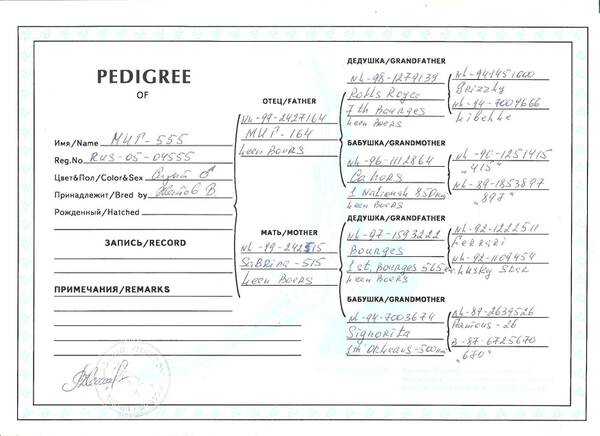 PEDIGREE
OF
Имя/Name МИГ-555
Reg.No RUS-05-04555
Цвет&Пол/Color&Sex ♂
Принадлежит/Bred by В.
Рожденный/Hatched
ЗАПИСЬ/RECORD
ПРИМЕЧАНИЯ/REMARKS
ОТЕЦ/FATHER
NL-99-2427164
МИГ-164
Leen Boers
МАТЬ/MOTHER
NL-99-242515
SaBrina-515
Leen Boers
ДЕДУШКА/GRANDFATHER
NL-98-1279139
Rolls Royce
7th Bourges
Leen Boers
БАБУШКА/GRANDMOTHER
NL-96-1112864
Cahors
1 National 850km
Leen Boers
ДЕДУШКА/GRANDFATHER
NL-97-1593222
Bourges
1st. Bourges 565km
Leen Boers
БАБУШКА/GRANDMOTHER
NL-94-7003674
Signorita
1th Orleans-500km
NL-94-1451000
Grizzly
NL-94-7009666
Libelle
NL-90-1251415
"415"
NL-89-1853897
"897"
NL-92-1222511
Ferrari
NL-92-1109454
Husky Star
NL-89-2639526
Famous-26
B-87-6725670
"670"